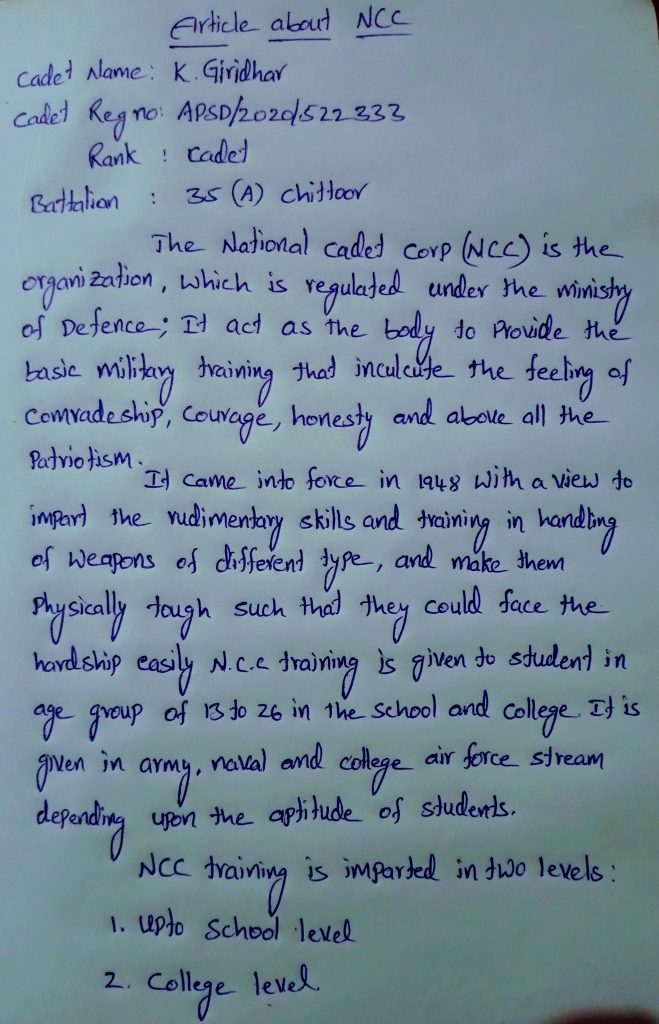 Article about NCC
Cadet Name: K. Giridhar
Cadet Reg no: APSD/2020/522333
Rank : cadet
Battalion : 35 (A) Chittoor
The National cadet corp (NCC) is the
organization, which is regulated under the ministry
of Defence; It act as the body to Provide the
basic military training that inculcute the feeling of
comradeship, courage, honesty and above all the
Patriotism.
It came into force in 1948 with a view to
impart the rudimentary skills and training in handling
of weapons of different type, and make them
Physically tough such that they could face the
hardship easily N.C.C training is given to student in
age group of 13 to 26 in the school and college. It is
given in army, naval and college air force stream
depending upon the aptitude of students.
NCC training is imparted in two levels:
1. upto School level
2. College level